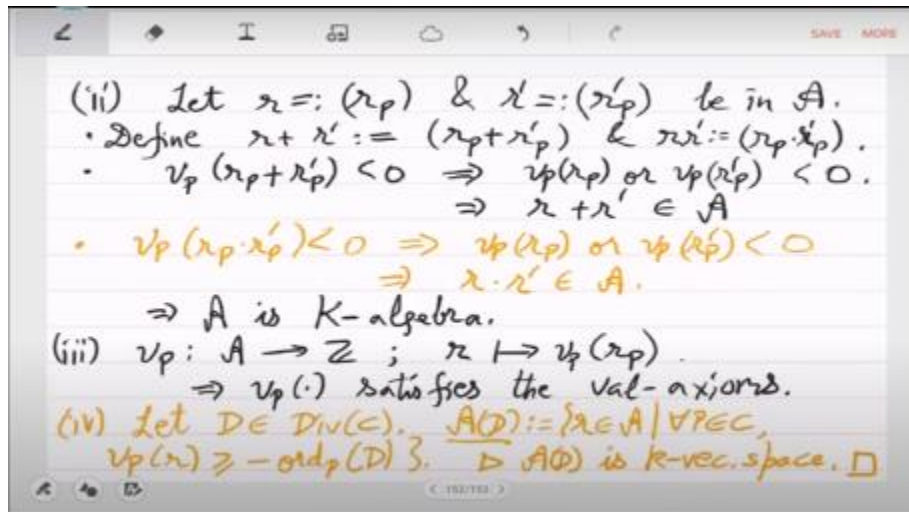 SAVE MORE
(ii) Let r =: (r_p) & r' =: (r'_p) be in A.
· Define r + r' := (r_p + r'_p) & rr' := (r_p · r'_p).
· v_p (r_p + r'_p) < 0 ⇒ v_p(r_p) or v_p(r'_p) < 0.
⇒ r + r' ∈ A
· v_p (r_p · r'_p) < 0 ⇒ v_p(r_p) or v_p(r'_p) < 0
⇒ r · r' ∈ A.
⇒ A is K-algebra.
(iii) v_p : A → Z ; r ↦ v_p(r_p).
⇒ v_p(·) satisfies the val-axioms.
(iv) Let D ∈ Div(C). A(D) := {r ∈ A | ∀P ∈ C,
v_p(r) ⩾ - ord_p(D)}. ▷ A(D) is k-vec. space. □
< 152/152 >